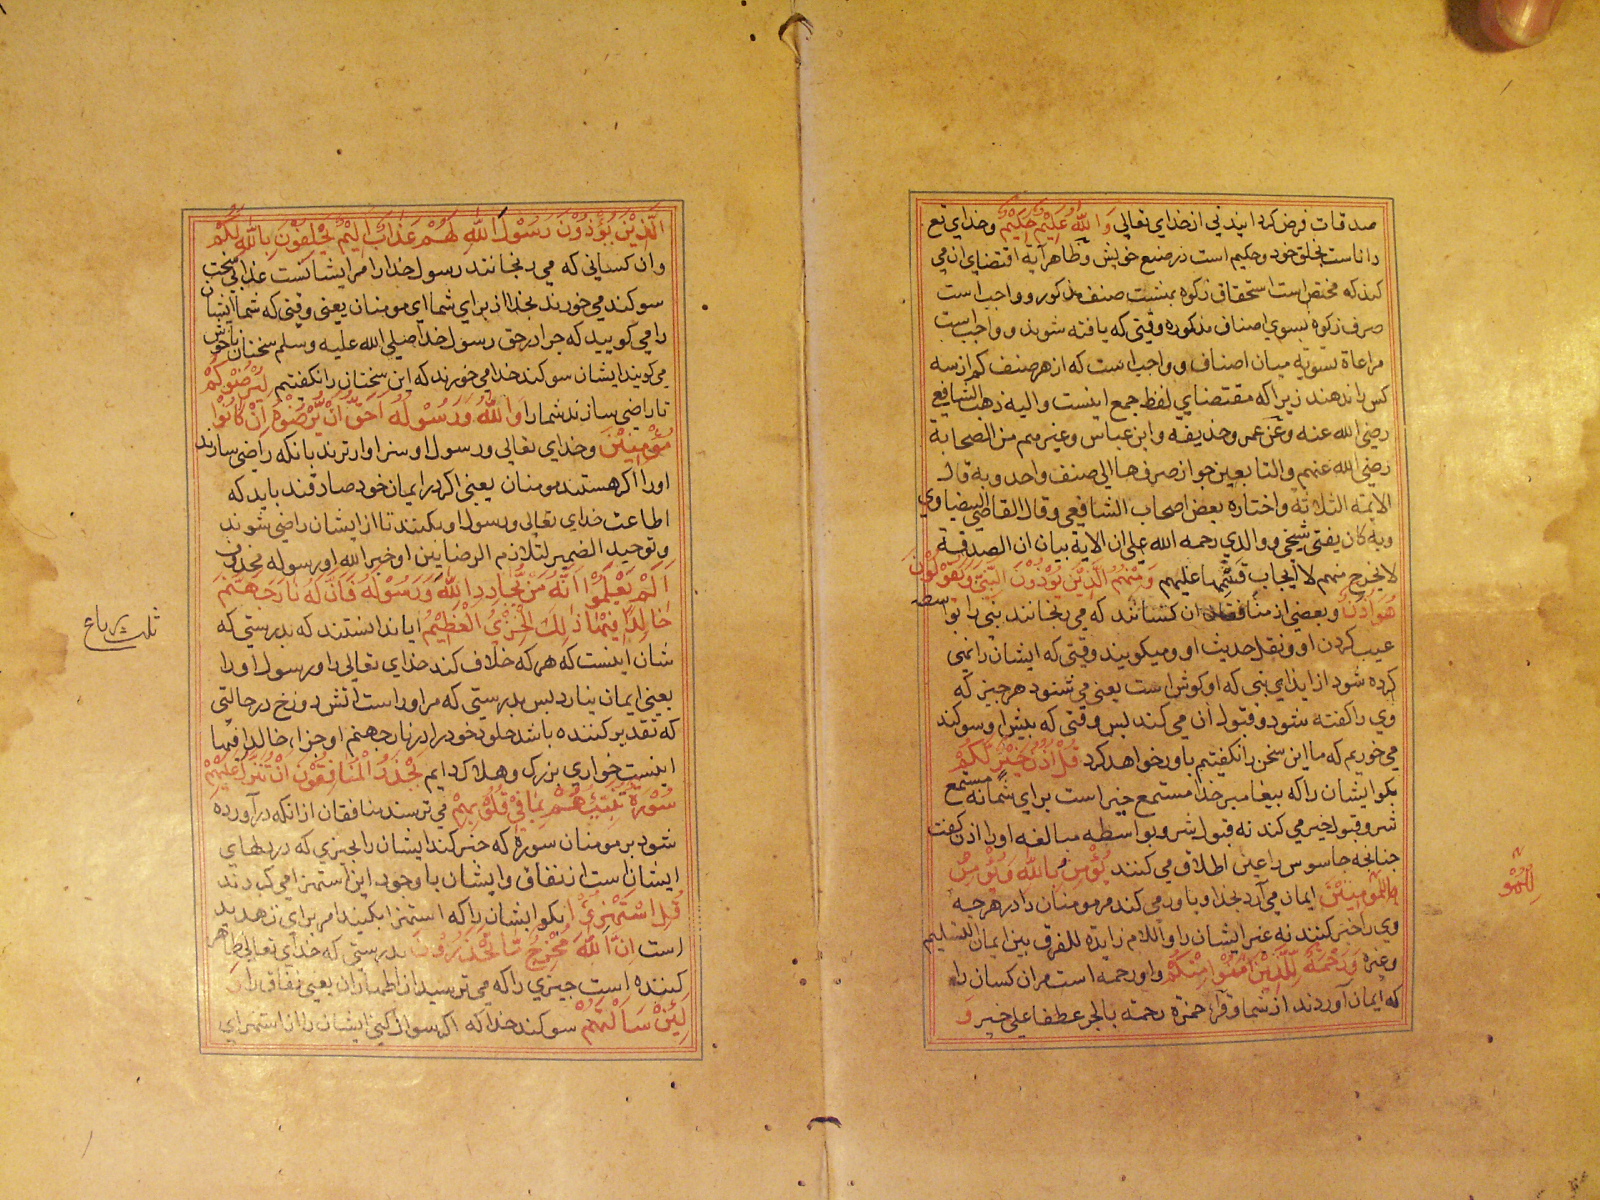 صدقات فرض کرد ایند نی از خدای تعالی وَاللّٰهُ عَلِيْمٌ حَكِيْمٌ و خدای تع
داناست بخلق خود و حکیم است در صنع خویش و ظاهر آیه اقتضای ان می
کند که مختص است استحقاق زکوه بهشت صنف مذکور و واجب است
صرف زکوه بسوی اصناف مذکوره وقتی که یافته شوند و واجب است
مراعاة تسویه میان اصناف و واجب است که از هر صنف کم از سه
کس را ندهند زیرا که مقتضای لفظ جمع اینست والیه ذهب الشافعی
رضی الله عنه و عن عمر وحذیفه وابن عباس وغیرهم من الصحابة
رضی الله عنهم والتابعین جواز صرفها الی صنف واحد وبه قال
الایمه الثلاثة واختاره بعض اصحاب الشافعی وقال القاضی البیضاوی
وبه کان یفتی شیخی ووالدی رحمه الله علی ان الایة بیان ان الصدقة
لا یخرج منهم لا ایجاب قسمها علیهم وَمِنْهُمُ الَّذِيْنَ يُؤْذُوْنَ النَّبِيَّ وَيَقُوْلُوْنَ
هُوَ اُذُنٌ و بعضی از منافقان ان کسانند که می رنجانند نبی را بواسطه
عیب کردن او و نقل حدیث او و میکویند وقتی که ایشان را نهی
کرده شود از ایذای نبی که او کوش است یعنی می شنود هر چیز که
وی را کفته شود و قبول آن می کند پس وقتی که بیش او سوکند
می خوریم که ما این سخن را نکفتیم باور خواهد کرد قُلْ اُذُنُ خَيْرٍ لَّكُمْ
بکو ایشان را که پیغامبر خدا مستمع خیر است برای شما نه مستمع
شر و قبول خیر می کند نه قبول شر و بواسطه مبالغه او را اذن کفت
چنانچه جاسوس را عین اطلاق می کنند يُؤْمِنُ بِاللّٰهِ وَيُؤْمِنُ
لِلْمُؤْمِنِيْنَ ایمان می آرد بخدا و باور می کند مر مومنان را در هر چه
وی را خبر کنند نه غیر ایشان را واللام زایدة للفرق بین ایمان التسلیم
وغیره وَرَحْمَةٌ لِّلَّذِيْنَ اٰمَنُوْا مِنْكُمْ و او رحمه است مر ان کسان را
که ایمان آوردند از شما و قرا حمزة رحمة بالجر عطفا علی خیر وَ
الَّذِيْنَ يُؤْذُوْنَ رَسُوْلَ اللّٰهِ لَهُمْ عَذَابٌ اَلِيْمٌ يَحْلِفُوْنَ بِاللّٰهِ لَكُمْ
وان کسانی که می رنجانند رسول خدا را مر ایشانست عذابی سخت
سوکند می خورند بخدا از برای شما ای مومنان یعنی وقتی که شما ایشان
را می کویید که چرا در حق رسول خدا صلی الله علیه وسلم سخنان ناخوش
می کویند ایشان سوکند خدا می خورند که این سخنان را نکفتیم لِيُرْضُوْكُمْ
تا راضی سازند شما را وَاللّٰهُ وَرَسُوْلُهٗ اَحَقُّ اَنْ يُّرْضُوْهُ اِنْ كَانُوْا
مُؤْمِنِيْنَ و خدای تعالی و رسول او سزاوارترند بانکه راضی سازند
او را اکر هستند مومنان یعنی اکر در ایمان خود صادقند باید که
اطاعت خدای تعالی و رسول او بکنند تا از ایشان راضی شوند
وتوحید الضمیر لتلازم الرضایین او خبر الله او رسوله محذوف
اَلَمْ يَعْلَمُوْا اَنَّهٗ مَنْ يُّحَادِدِ اللّٰهَ وَرَسُوْلَهٗ فَاَنَّ لَهٗ نَارَ جَهَنَّمَ
خَالِدًا فِيْهَا ذٰلِكَ الْخِزْيُ الْعَظِيْمُ ایا ندانستند که بدرستی که
شان اینست که هر که خلاف کند خدای تعالی را و رسول او را
یعنی ایمان نیارد پس بدرستی که مر اوراست اتش دوزخ در حالتی
که تقدیر کننده باشد خلود خود را در نار جهنم او جزاء خالدا فیها
اینست خواری بزرک و هلاک دایم يَحْذَرُ الْمُنَافِقُوْنَ اَنْ تُنَزَّلَ عَلَيْهِمْ
سُوْرَةٌ تُنَبِّئُهُمْ بِمَا فِيْ قُلُوْبِهِمْ می ترسند منافقان از انکه در آورده
شود بر مومنان سورة که خبر کند ایشان را بچیزی که در دلهای
ایشان است از نفاق و ایشان با وجود این استهزا می کردند
قُلِ اسْتَهْزِءُوْا بکو ایشان را که استهزا بکنید امر برای تهدید
است اِنَّ اللّٰهَ مُخْرِجٌ مَّا تَحْذَرُوْنَ بدرستی که خدای تعالی ظاهر
کننده است چیزی را که می ترسید از اظهار ان یعنی نفاق را وَ
لَئِنْ سَاَلْتَهُمْ سوکند خدا که اکر سوال کنی ایشان را از استهزای